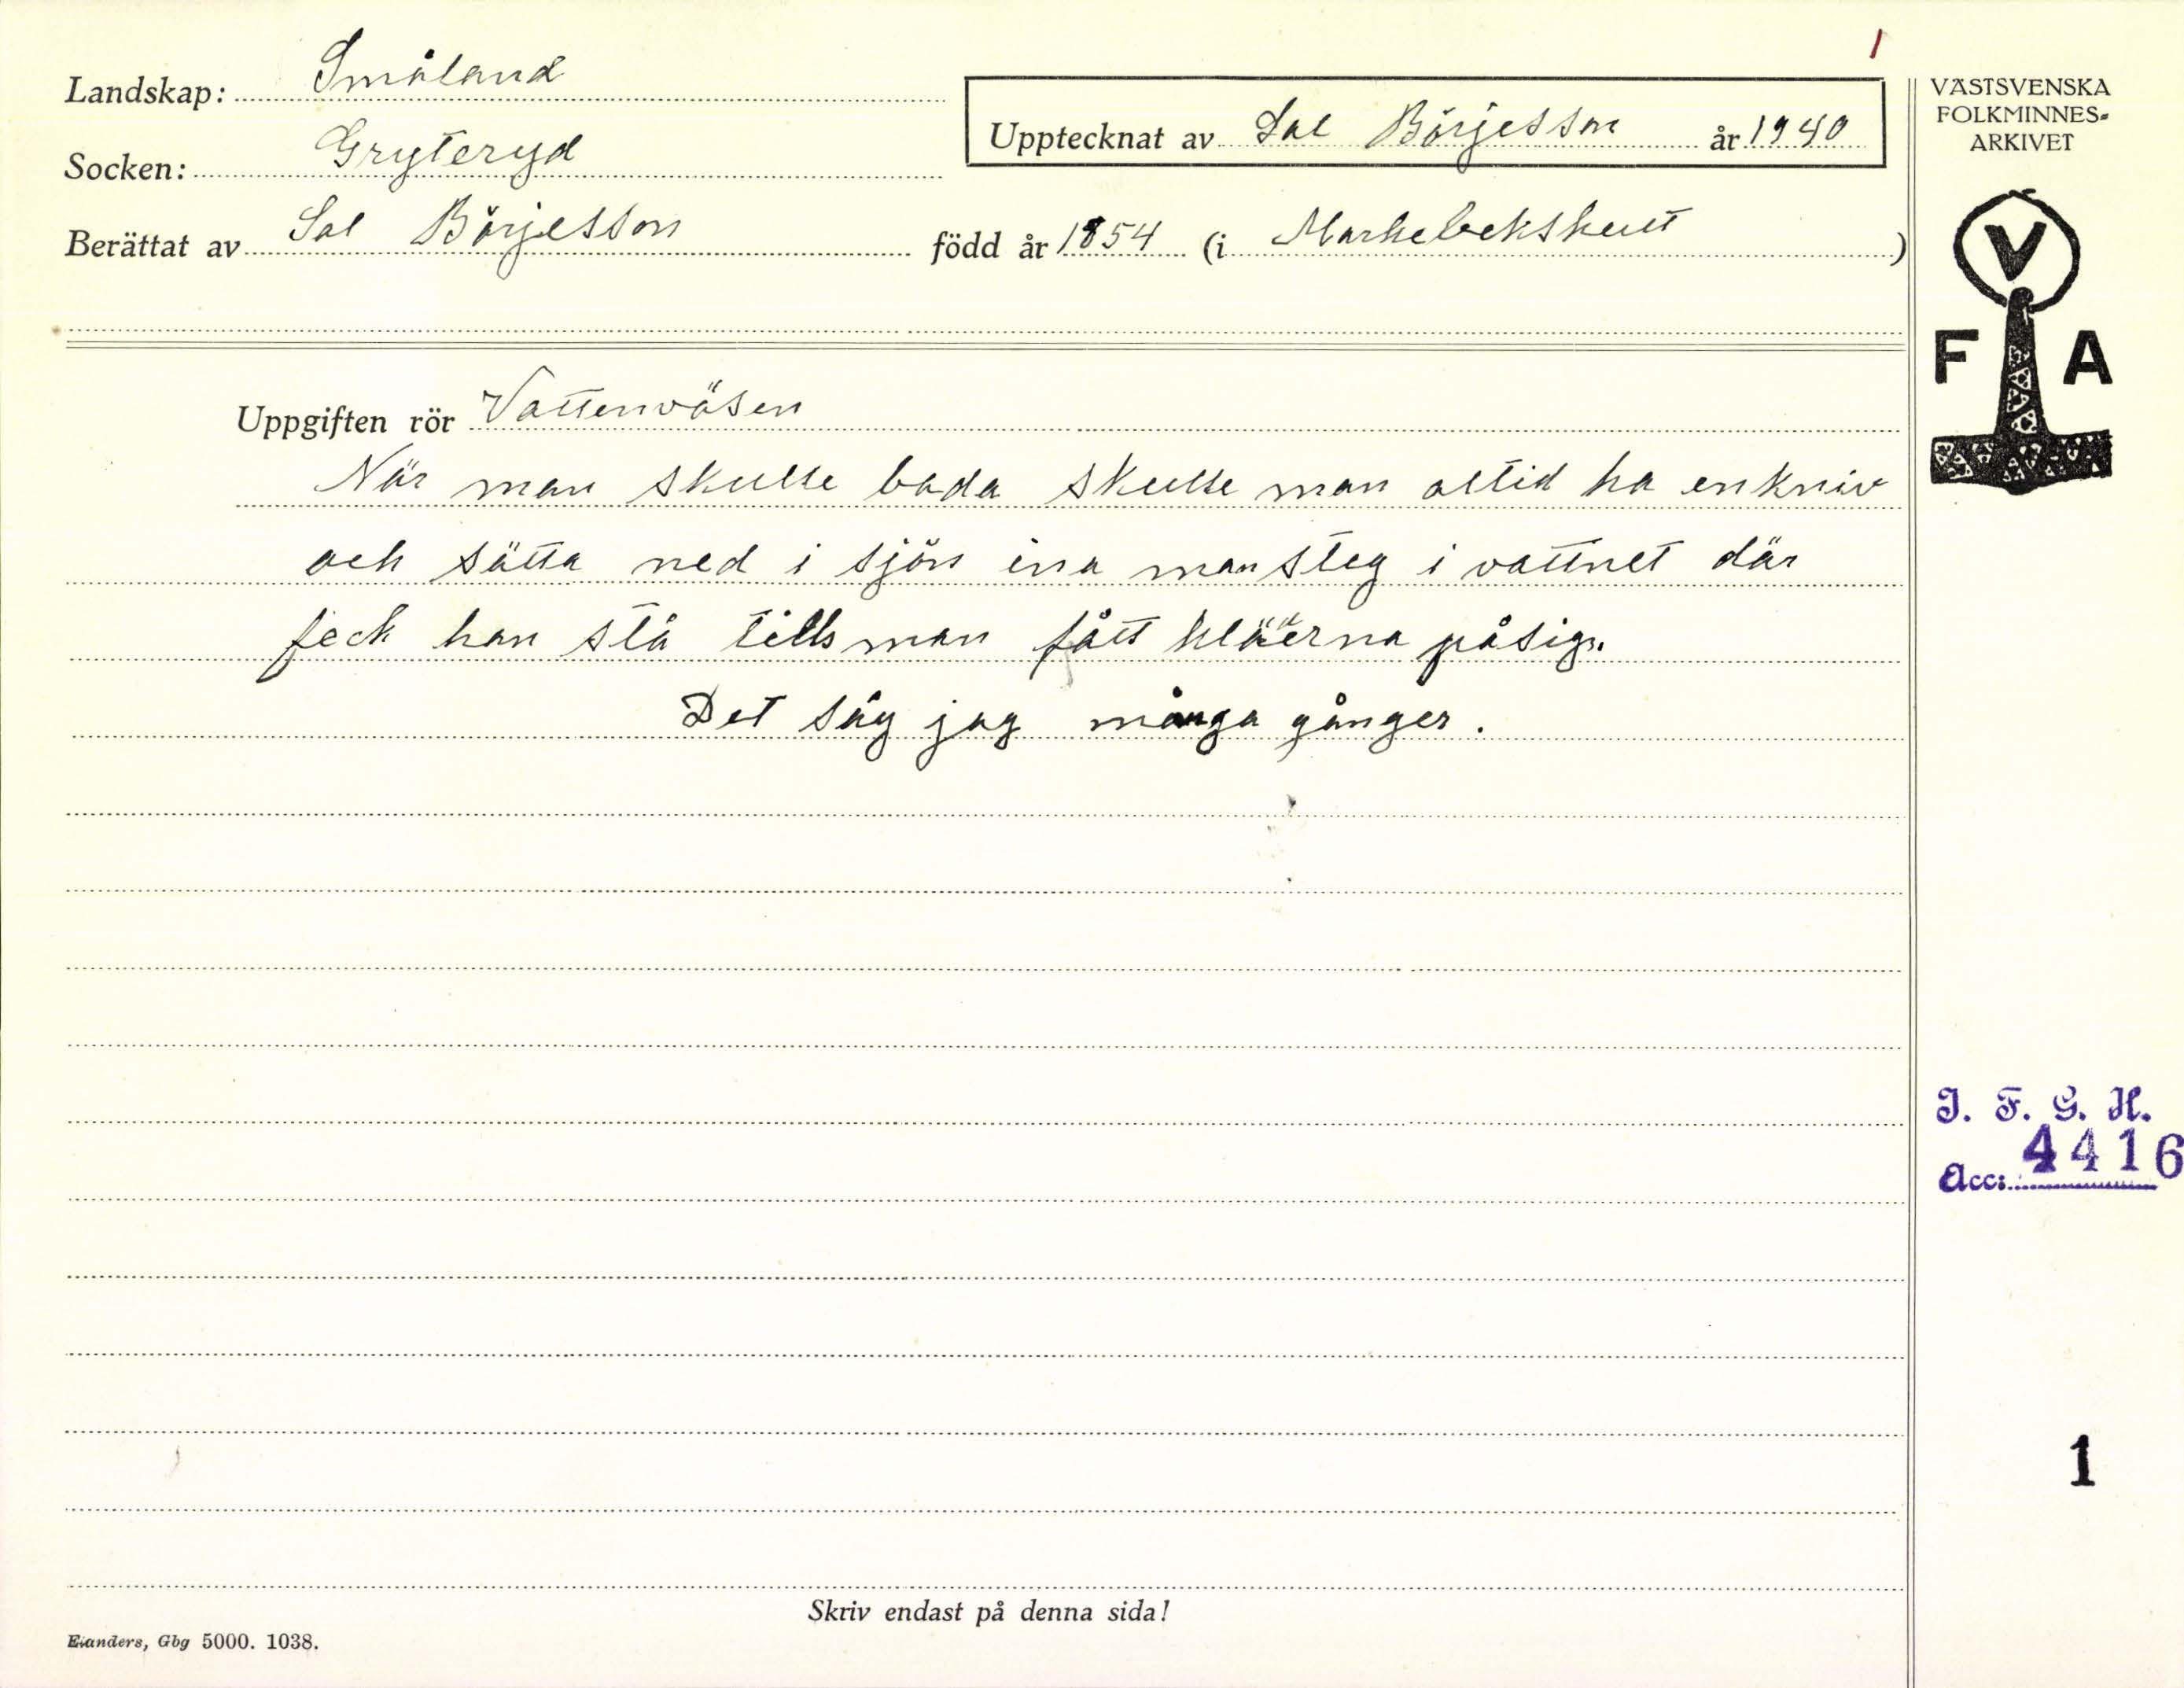 1
Landskap: Småland
Socken: Gryteryd
Upptecknat av Sal Börjesson år 1940
Berättat av Sal Börjesson född år 1854 (i )
Uppgiften rör Vattenväsen
När man skulle bada skulle man altid ha en kniv
och sätta ned i sjön ina man steg i vattnet där
feck han stå tills man fått kläerna påsig.
Det såg jag många gånger.
Skriv endast på denna sida!
Elanders, Gbg 5000. 1038.
VÄSTSVENSKA
FOLKMINNES-
ARKIVET
V
F A
I. F. G. H.
Acc: 4416
1